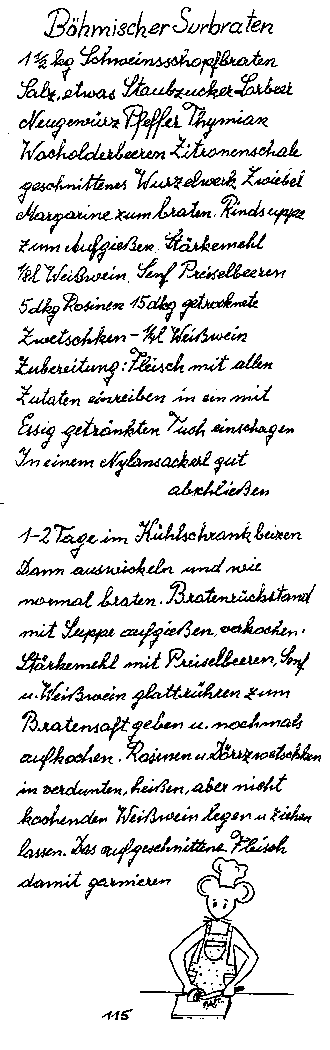 Böhmischer Surbraten
1 1/2 kg Schweinsschopfbraten
Salz, etwas Staubzucker Lorbeer
Neugewürz Pfeffer Thymian
Wacholderbeeren Zitronenschale
geschnittenes Wurzelwerk Zwiebel
Margarine zum braten. Rindsuppe
zum Aufgießen Stärkemehl
1/8 l Weißwein Senf Preiselbeeren
5 dkg Rosinen 15 dkg getrocknete
Zwetschken - 1/8 l Weißwein
Zubereitung: Fleisch mit allen
Zutaten einreiben in ein mit
Essig getränkten Tuch einschlagen
In einem Nylonsackerl gut
abschließen
1-2 Tage im Kühlschrank beizen
Dann auswickeln und wie
normal braten. Bratenrückstand
mit Suppe aufgießen, verkochen.
Stärkemehl mit Preiselbeeren, Senf
u. Weißwein glattrühren zum
Bratensaft geben u. nochmals
aufkochen. Rosinen u. Dörrzwetschken
in verdünnten, heißen, aber nicht
kochenden Weißwein legen u ziehen
lassen. Das aufgeschnittene Fleisch
damit garnieren
115